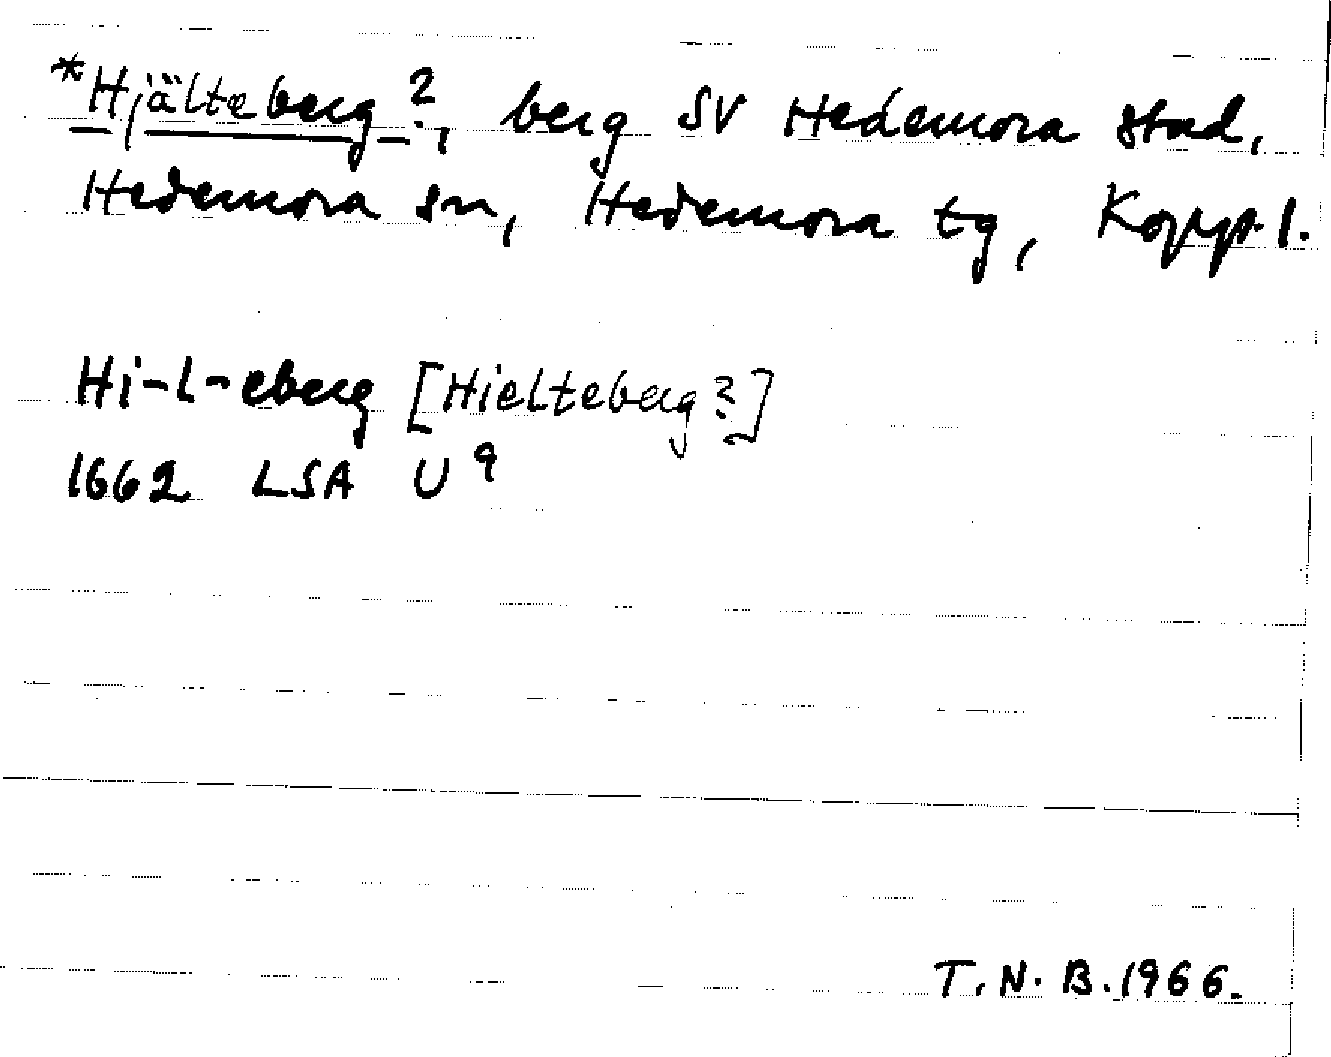 *Hjälteberg?, berg SV Hedemora stad,
Hedemora sn, Hedemora tg, Kopp. l.
Hi-l-eberg [Hielteberg?]
1662 LSA U⁹
T. N. B. 1966.